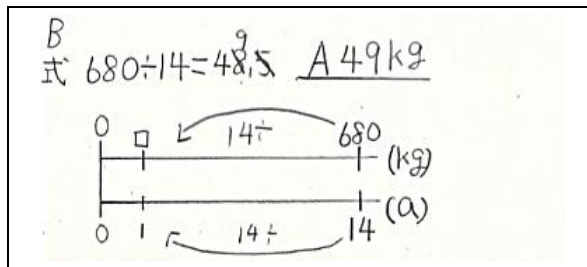 B
式 680÷14=48.5 9 A 49kg
0 □ 14÷ 680 (kg)
0 1 14÷ 14 (a)